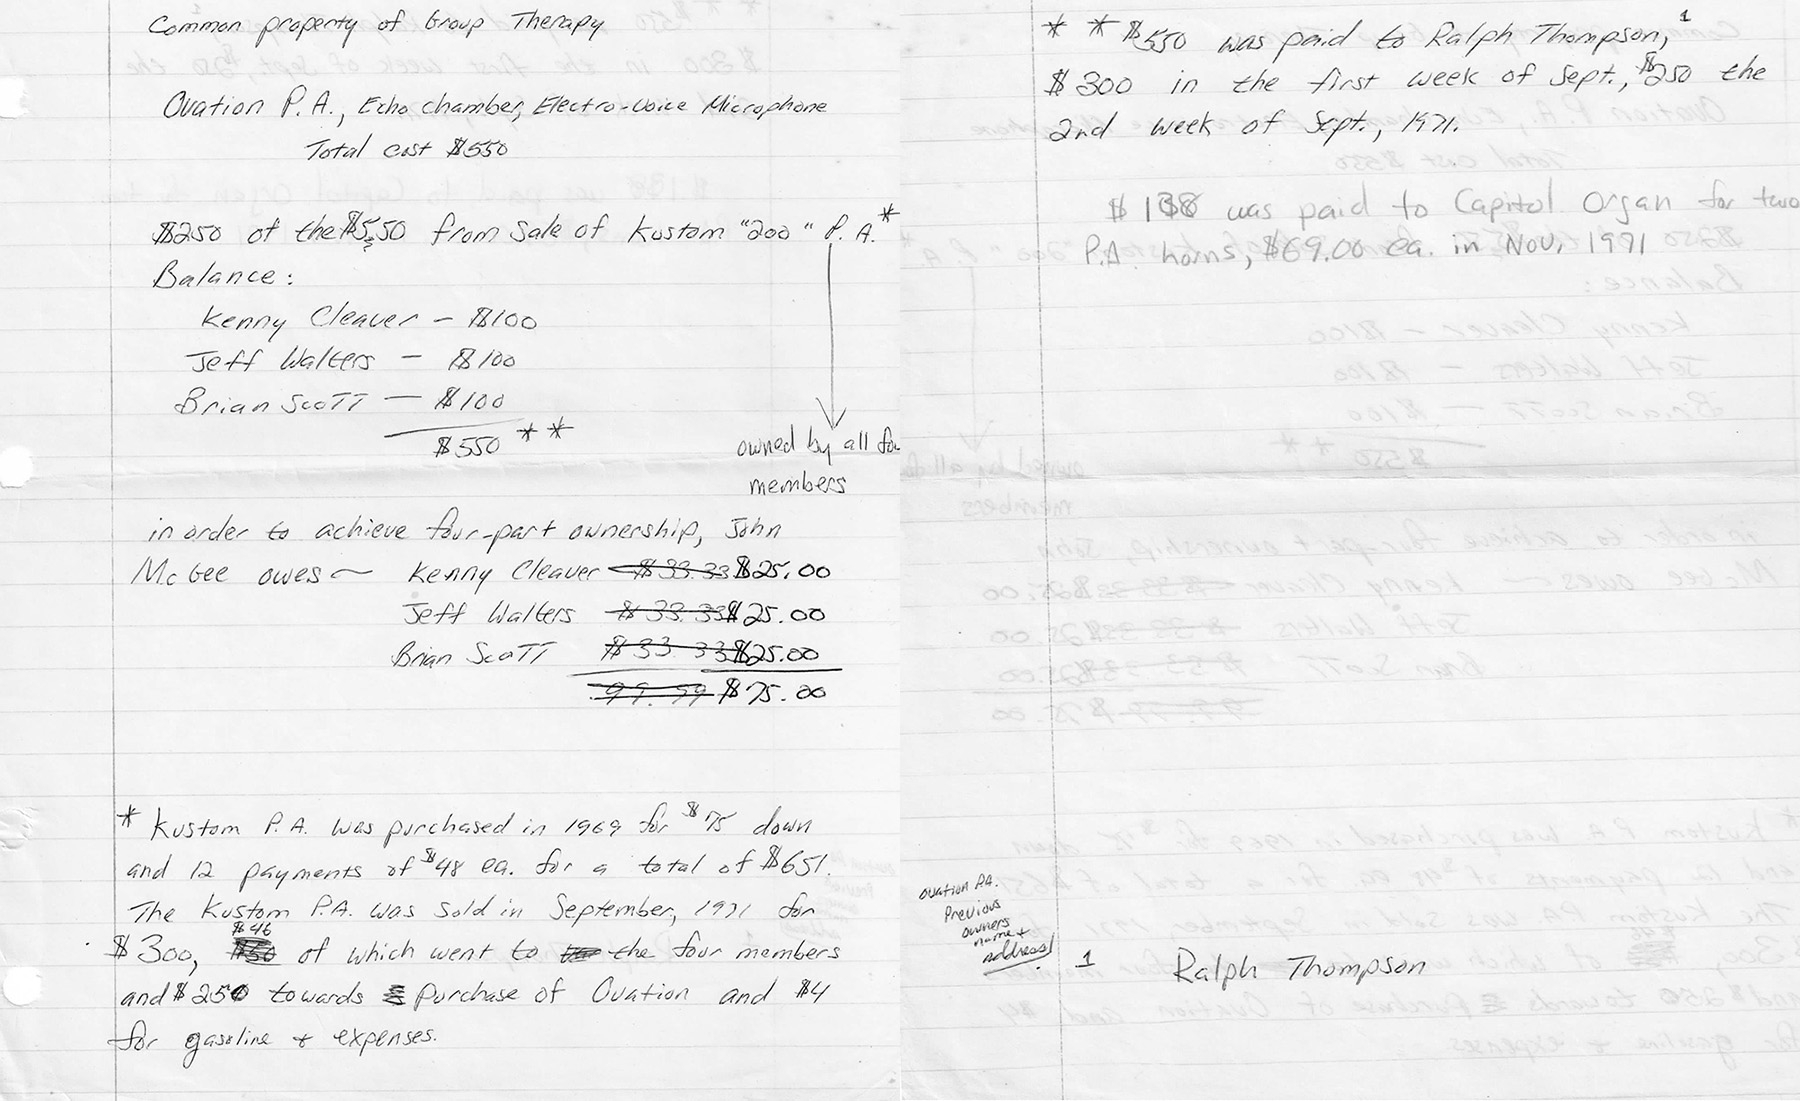 Common property of Group Therapy
Ovation P.A., Echo chamber, Electro-Voice Microphone
Total cost $550
$250 of the $550 from sale of Kustom "200" P.A.*
Balance:
Kenny Cleaver – $100
Jeff Walters – $100
Brian Scott – $100
$550 **
owned by all fou
members
in order to achieve four-part ownership, John
McGee owes – Kenny Cleaver $33.33 $25.00
Jeff Walters $33.33 $25.00
Brian Scott $33.33 $25.00
99.99 $75.00
* Kustom P.A. was purchased in 1969 for $75 down
and 12 payments of $48 ea. for a total of $651.
The Kustom P.A. was sold in September, 1971 for
$46
$300, $50 of which went to the four members
and $250 towards purchase of Ovation and $4
for gasoline + expenses.
** $550 was paid to Ralph Thompson,1
$300 in the first week of Sept., $250 the
2nd week of Sept., 1971.
$138 was paid to Capitol Organ for two
P.A. horns, $69.00 ea. in Nov. 1971
Ovation P.A.
Previous
owners
name +
address!
1 Ralph Thompson